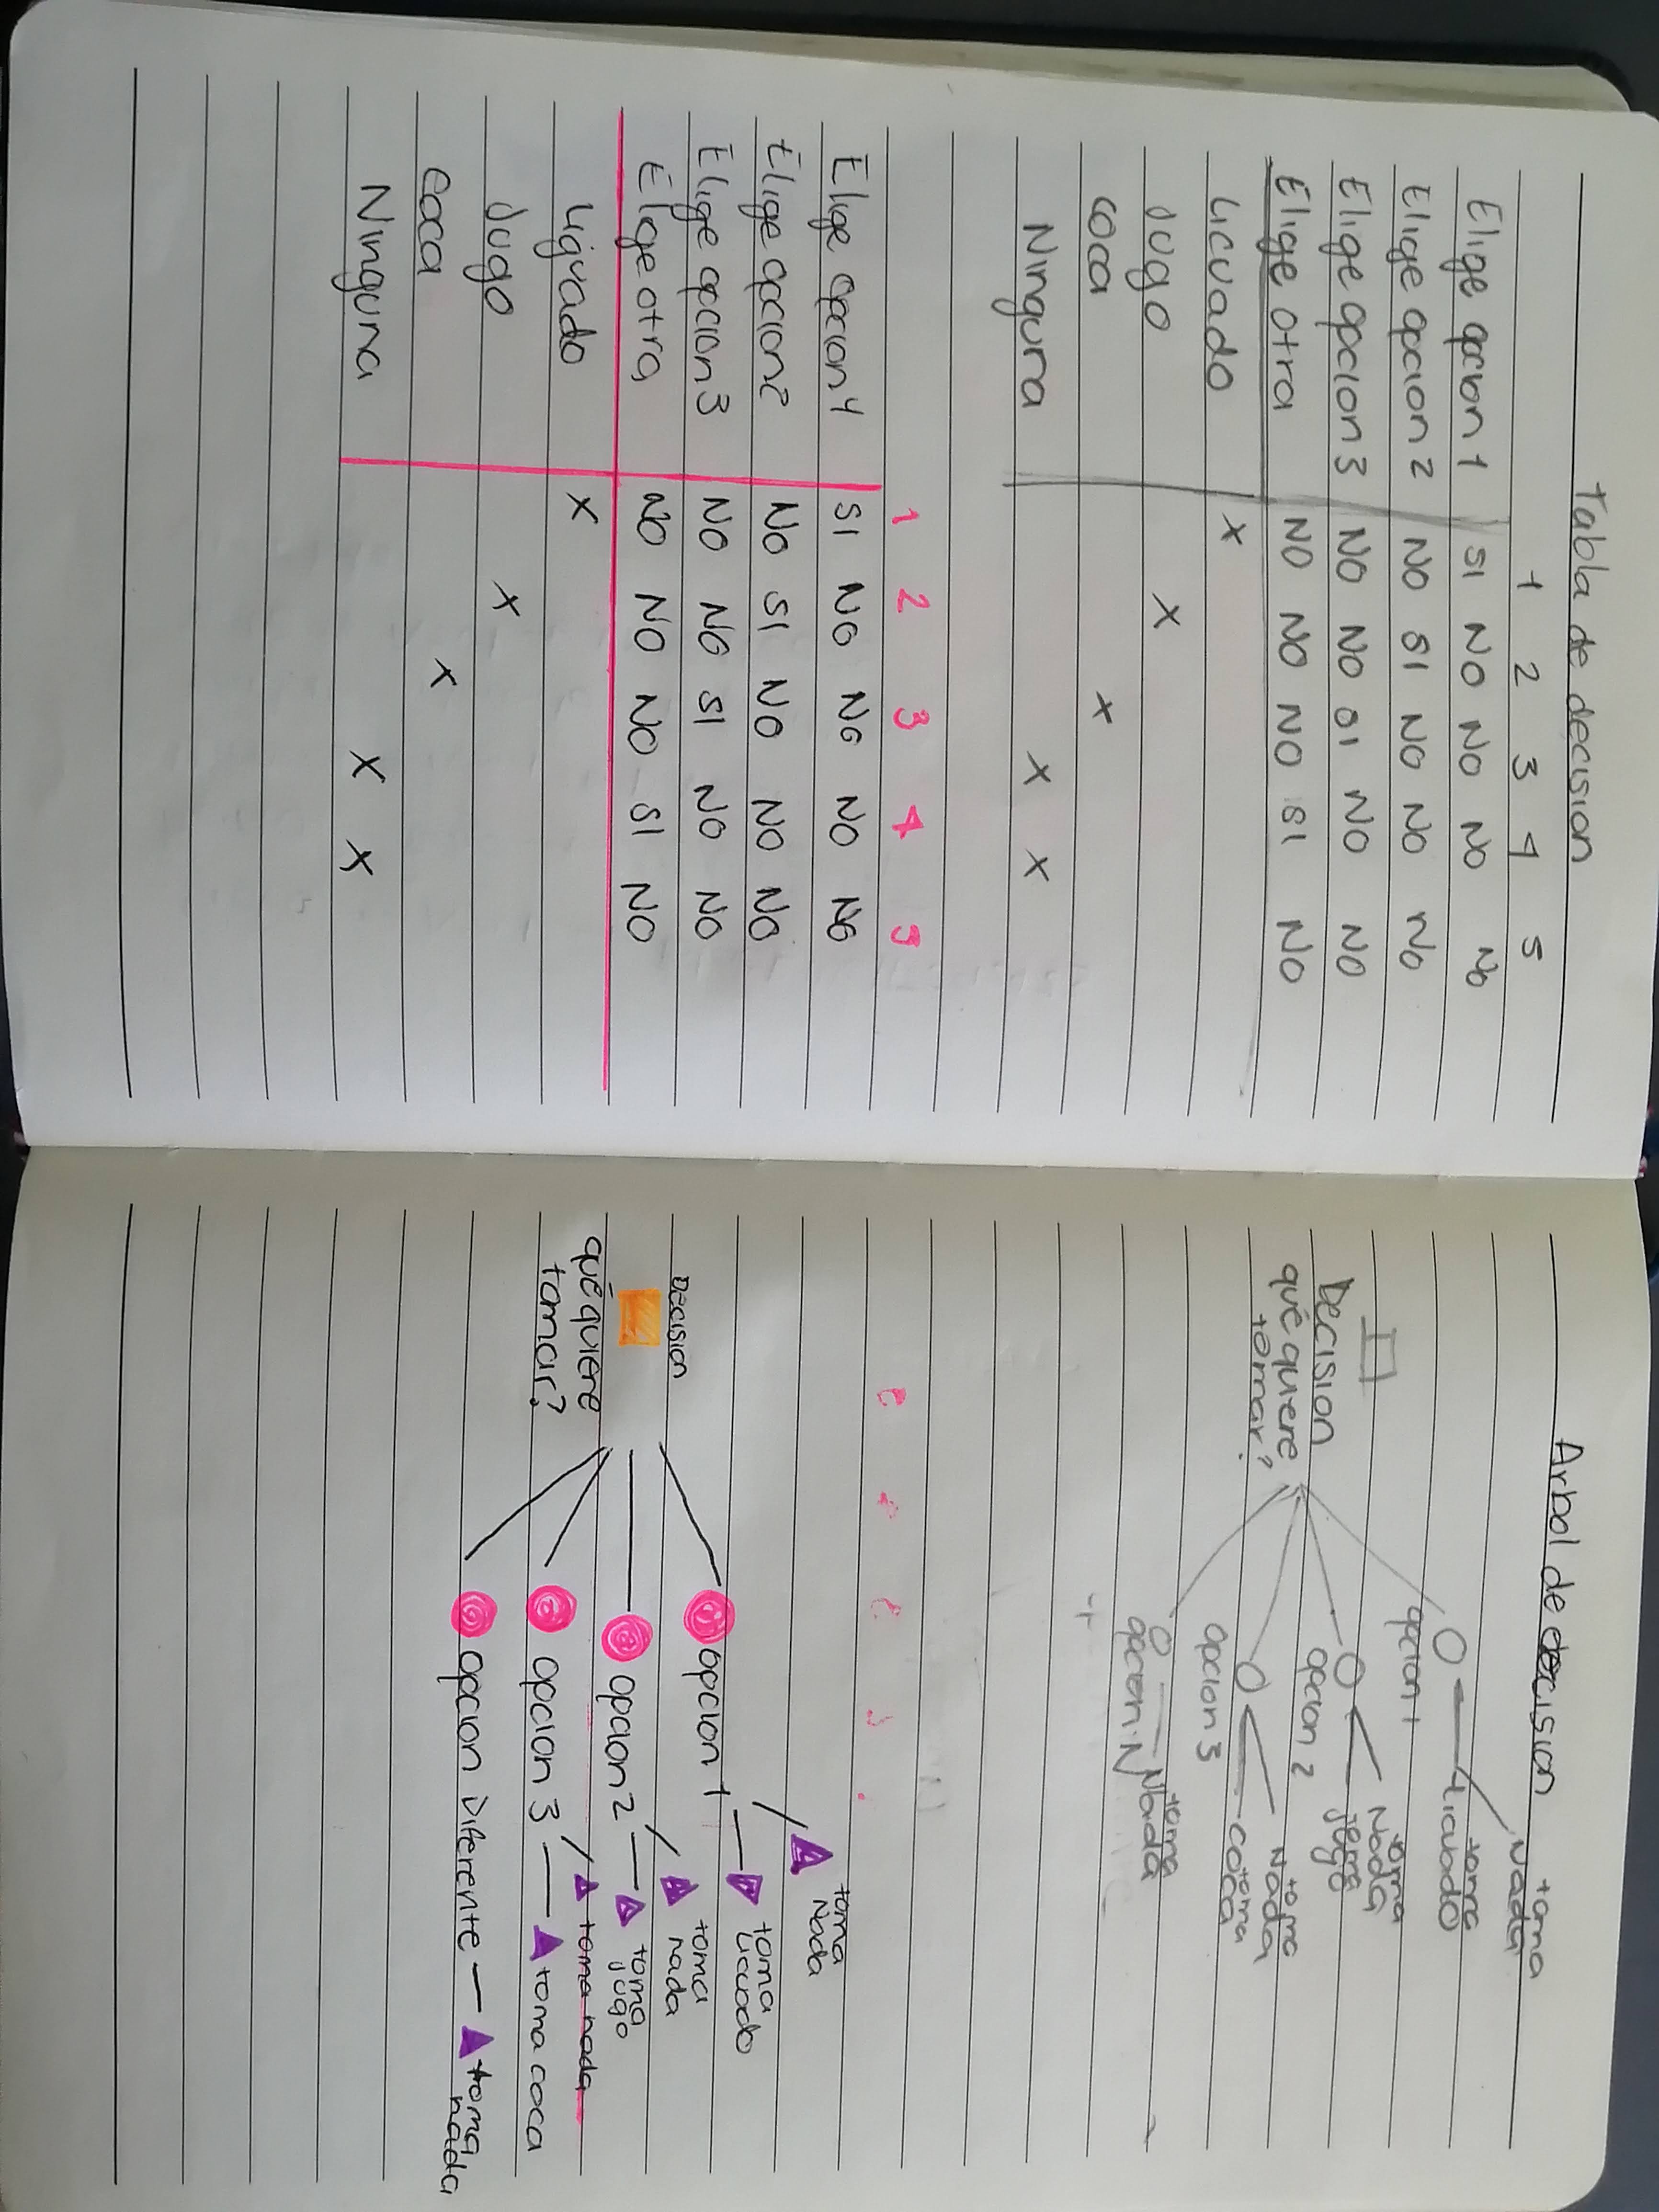 Tabla de decision
1 2 3 4 5
Elige opcion 1 SI NO NO NO No
Elige opcion 2 NO SI NO NO No
Elige opcion 3 NO NO SI NO NO
Elige otra NO NO NO SI NO
Licuado X
Jugo X
coca X
Ninguna X X
1 2 3 4 5
Elige opcion 1 SI NO NO NO NO
Elige opcion 2 NO SI NO NO NO
Elige opcion 3 NO NO SI NO NO
Elige otra NO NO NO SI NO
Licuado X
Jugo X
coca X
Ninguna X X
Arbol de decision
toma
Nada
toma
Licuado
opcion 1
Decision
qué quiere
tomar?
toma
Nada
toma
jugo
opcion 2
toma
Nada
toma
coca
opcion 3
toma
Nada
opcion N
toma
Nada
Decision
opcion 1
toma
Licuado
qué quiere
tomar?
toma
nada
opcion 2
toma
jugo
toma nada
opcion 3
toma coca
opcion Diferente
toma
nada